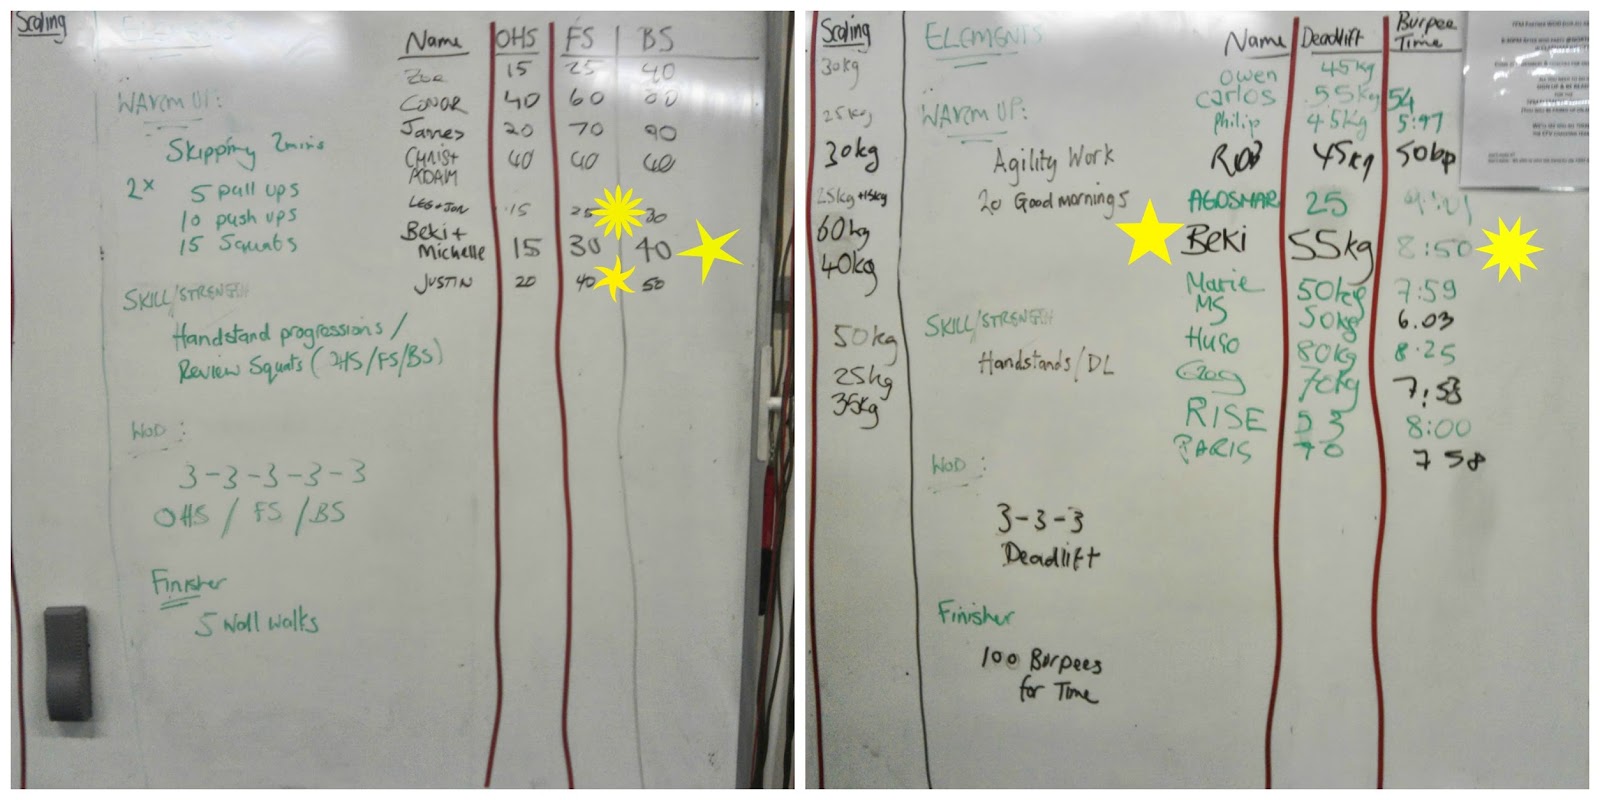 Scaling
ELEMENTS
Name OHS FS BS
Zoe 15 25 40
CONOR 40 60 80
James 20 70 90
Christ 40 40 40
ADAM
LEG+JON 15 25 30
Beki +
Michelle 15 30 40
JUSTIN 20 40 50
WARM UP:
Skipping 2mins
2x 5 pull ups
10 push ups
15 Squats
SKILL/STRENGTH
Handstand progressions/
Review Squats (OHS/FS/BS)
WOD:
3-3-3-3-3
OHS / FS / BS
Finisher
5 Wall walks
Scaling
30kg
25kg
30kg
25kg+15kg
60kg
40kg
50kg
25kg
35kg
ELEMENTS
WARM UP:
Agility Work
20 Good mornings
SKILL/STRENGTH
Handstands/DL
WOD:
3-3-3
Deadlift
Finisher
100 Burpees
for Time
Name Deadlift Burpee Time
Owen 45kg
Carlos 55kg 54
Philip 45kg 5:97
ROB 45kg 50bp
AGOSMAR 25
Beki 55kg 8:50
Marie 50kg 7:59
MS 50kg 6.03
Hugo 80kg 8.25
70kg 7:53
RISE 53 8:00
PARIS 70 7 58